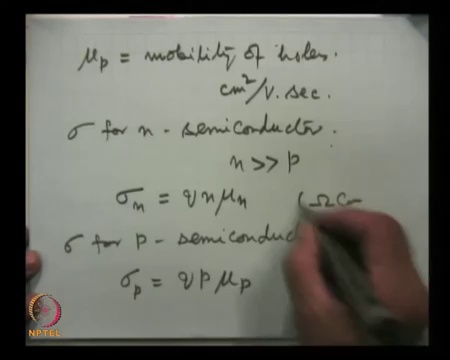 μp = mobility of holes.
cm²/V.sec.
σ for n - semiconductor.
n >> p
σn = qnμn (Ω c
σ for p - semiconduct
σp = qpμp
NPTEL